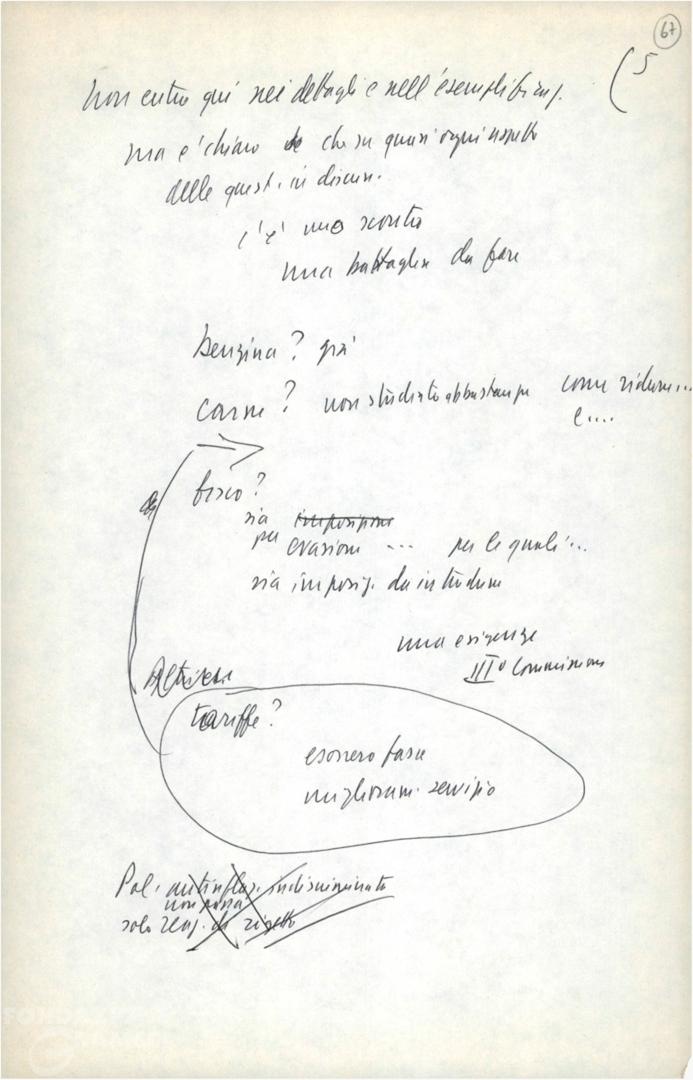 67
(5
non entro qui nei dettagli e nell'esemplificaz.
ma è chiaro che su quasi ogni aspetto
delle quest. in discuss.
c'è uno scontro
una battaglia da fare
benzina? già
carne? non studiato abbastanza come ridurre...
e....
fisco?
sia imposizione
per evasioni ... per le quali...
sia imposiz. da introdurre
una esigenza
IIIº Commissione
tariffe?
esonero fasce
miglioram. servizio
Pol. antinflaz. indiscriminata
non passa
solo